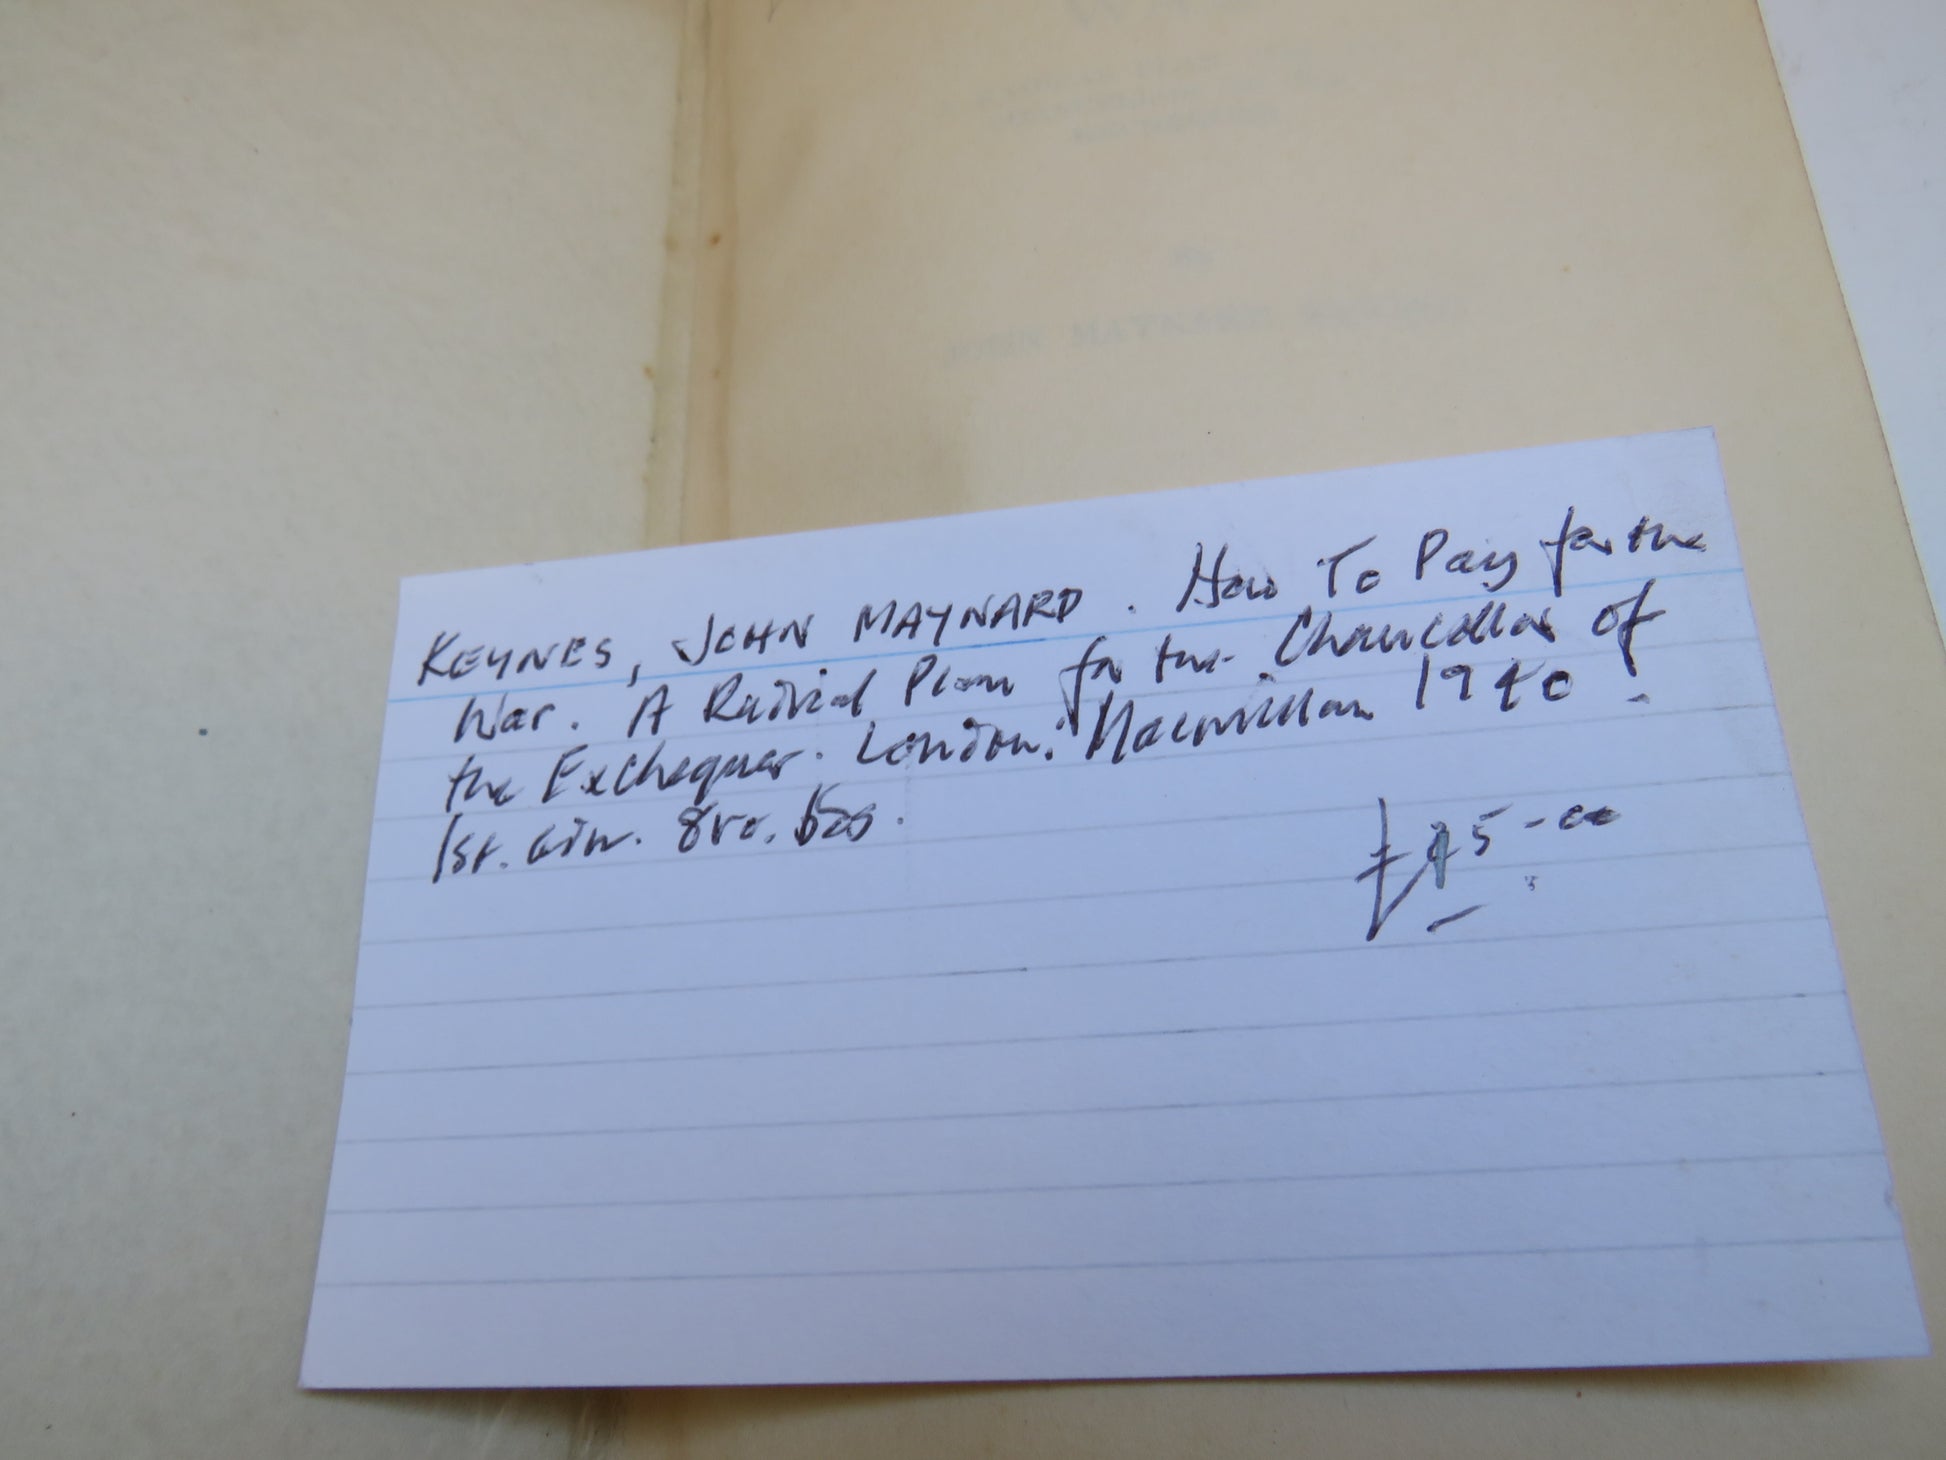 By
JOHN MAYNARD KEYNES
KEYNES, JOHN MAYNARD. How To Pay for the
War. A Radical Plan for the Chancellor of
the Exchequer. London: Macmillan 1940.
1st. edn. 8vo. bds.
£ 5-00